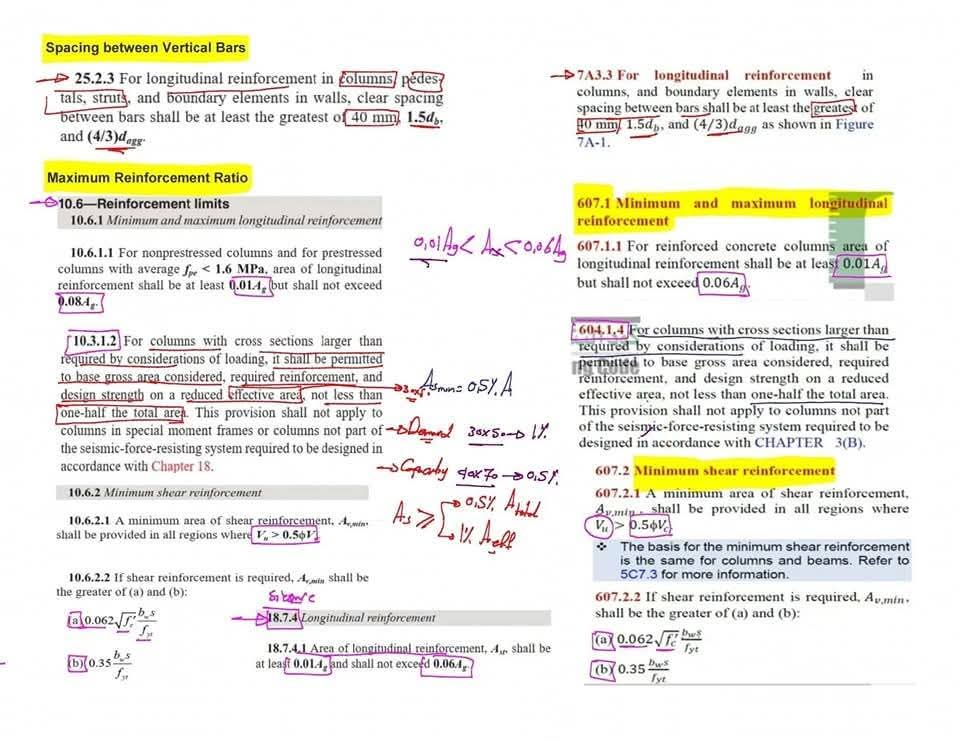 Spacing between Vertical Bars
25.2.3 For longitudinal reinforcement in columns, pedes-
tals, struts, and boundary elements in walls, clear spacing
between bars shall be at least the greatest of 40 mm, 1.5d_b,
and (4/3)d_agg.
Maximum Reinforcement Ratio
10.6—Reinforcement limits
10.6.1 Minimum and maximum longitudinal reinforcement
10.6.1.1 For nonprestressed columns and for prestressed
columns with average f_pe < 1.6 MPa, area of longitudinal
reinforcement shall be at least 0.01A_g but shall not exceed
0.08A_g.
10.3.1.2 For columns with cross sections larger than
required by considerations of loading, it shall be permitted
to base gross area considered, required reinforcement, and
design strength on a reduced effective area, not less than
one-half the total area. This provision shall not apply to
columns in special moment frames or columns not part of
the seismic-force-resisting system required to be designed in
accordance with Chapter 18.
10.6.2 Minimum shear reinforcement
10.6.2.1 A minimum area of shear reinforcement, A_v,min,
shall be provided in all regions where V_u > 0.5ϕV_c.
10.6.2.2 If shear reinforcement is required, A_v,min shall be
the greater of (a) and (b):
(a) 0.062√f_c′ b_w s / f_yt
(b) 0.35 b_w s / f_yt
0.01Ag < As < 0.06Ag
Asmin = 0.5% A
Demand 30x50 → 1%
Capacity 40x70 → 0.5%
As ≥ 0.5% A total
1% A eff
18.7.4 Longitudinal reinforcement
18.7.4.1 Area of longitudinal reinforcement, A_st, shall be
at least 0.01A_g and shall not exceed 0.06A_g.
7A3.3 For longitudinal reinforcement in
columns, and boundary elements in walls, clear
spacing between bars shall be at least the greatest of
40 mm, 1.5d_b, and (4/3)d_agg as shown in Figure
7A-1.
607.1 Minimum and maximum longitudinal
reinforcement
607.1.1 For reinforced concrete columns area of
longitudinal reinforcement shall be at least 0.01A_g
but shall not exceed 0.06A_g.
604.1.4 For columns with cross sections larger than
required by considerations of loading, it shall be
permitted to base gross area considered, required
reinforcement, and design strength on a reduced
effective area, not less than one-half the total area.
This provision shall not apply to columns not part
of the seismic-force-resisting system required to be
designed in accordance with CHAPTER 3(B).
607.2 Minimum shear reinforcement
607.2.1 A minimum area of shear reinforcement,
A_v,min, shall be provided in all regions where
V_u > 0.5ϕV_c.
❖ The basis for the minimum shear reinforcement
is the same for columns and beams. Refer to
5C7.3 for more information.
607.2.2 If shear reinforcement is required, A_v,min,
shall be the greater of (a) and (b):
(a) 0.062√f_c′ b_w s / f_yt
(b) 0.35 b_w s / f_yt